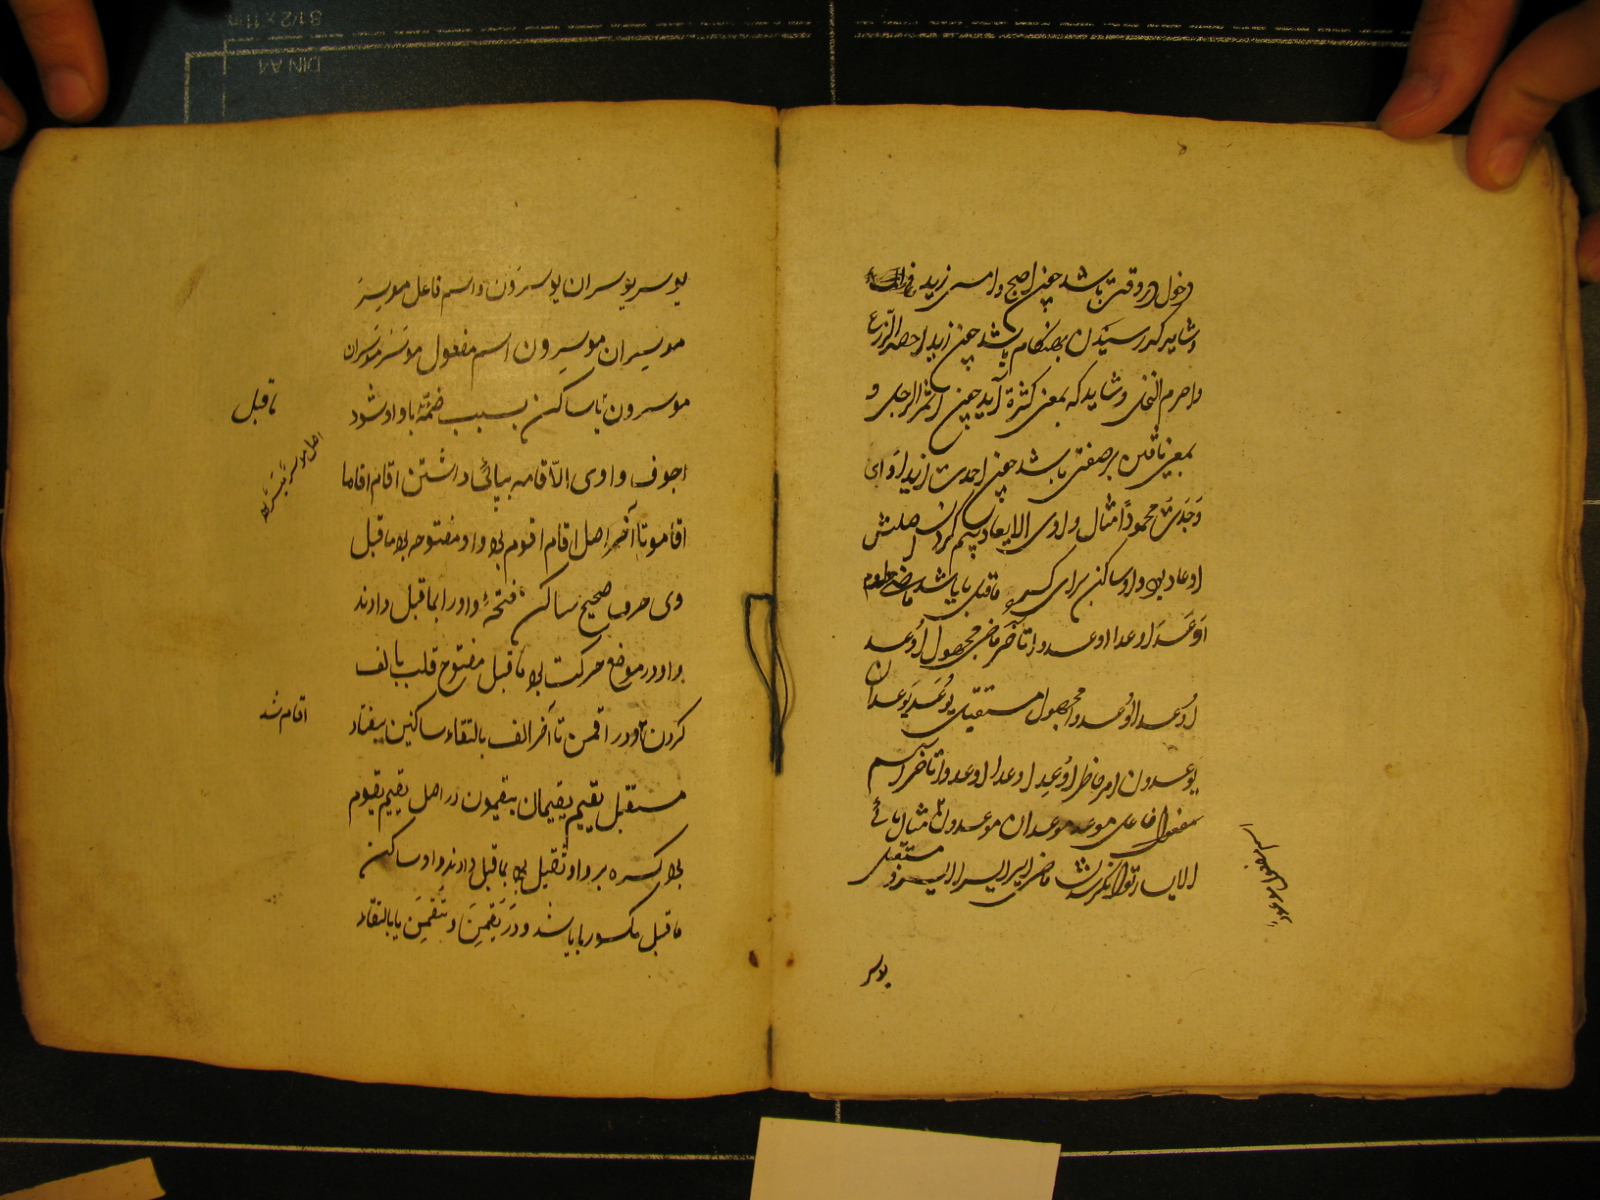 دخول در وقتی باشد چون اصبح وامسی زید
وشاید که رسیدن بهنگام باشد چون زید احصد الزرع
واحرم النخل وشاید که بمعنی کثرة آید چون اثمر الرجل و
بمعنی یافتن بر صفتی باشد چون احمدت زیدا ای
وَجَدتُ محمودًا مثال واوی الایعاد بیم کردن اصلش
اوعاد بود واو ساکن برای کسره ماقبل یا باشد ماضی معلوم
اَوعَدَ اوعدا اوعدوا تا آخر ماضی مجهول اُوعد
اُوعدا اُوعدوا مجهول مستقبل یُوعَد یُوعدان
یوعدون امر حاضر اَوعِد اوعدا اوعدوا تا آخر اسم
فاعل موعد موعدان موعدون مثال یائی
الایسار توانگر شدن ماضی ایسر ایسرا ایسروا
مستقبل
اسم مفعول موعد
یوسر
یوسر یوسران یوسرون واسم فاعل موسِر
موسران موسِرون اسم مفعول موسَر موسَران
موسرون یا ساکن بسبب ضمّهٔ با واو شود
ماقبل
اصل موسر مُیسِر بود
اجوف واوی الاقامه بپائی داشتن اقام اقاما
اقاموا تا آخر اصل اقام اقوم بود واو مفتوحه بود ماقبل
وی حرف صحیح ساکن فتحهٔ واو را بماقبل دادند
واو در موضع حرکت بود ماقبل مفتوح قلب بالف
کردن و در اقمن تا آخر الف بالتقاء ساکنین بیفتاد
اقام شد
مستقبل یقیم یقیمان یقیمون در اصل یقیم یقوم
بود کسره بر واو ثقیل بود بماقبل دادند واو ساکن
ماقبل مکسور یا باشد و در یَقِمنَ و تَقِمنَ یا بالتقاء